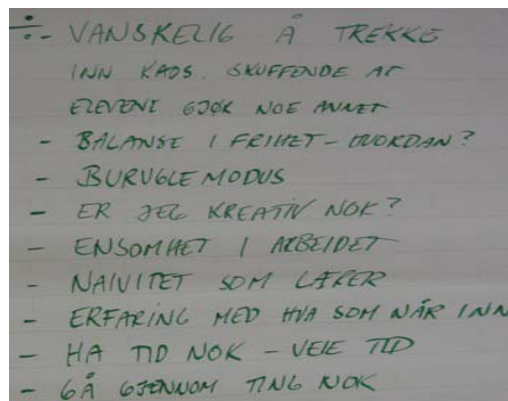 ÷- VANSKELIG Å TREKKE
INN KAOS. SKUFFENDE AT
ELEVENE GJØR NOE ANNET
- BALANSE I FRIHET - HVORDAN?
- BURUGLEMODUS
- ER JEG KREATIV NOK?
- ENSOMHET I ARBEIDET
- NAIVITET SOM LÆRER
- ERFARING MED HVA SOM NÅR INN
- HA TID NOK - VEIE TID
- GÅ GJENNOM TING NOK